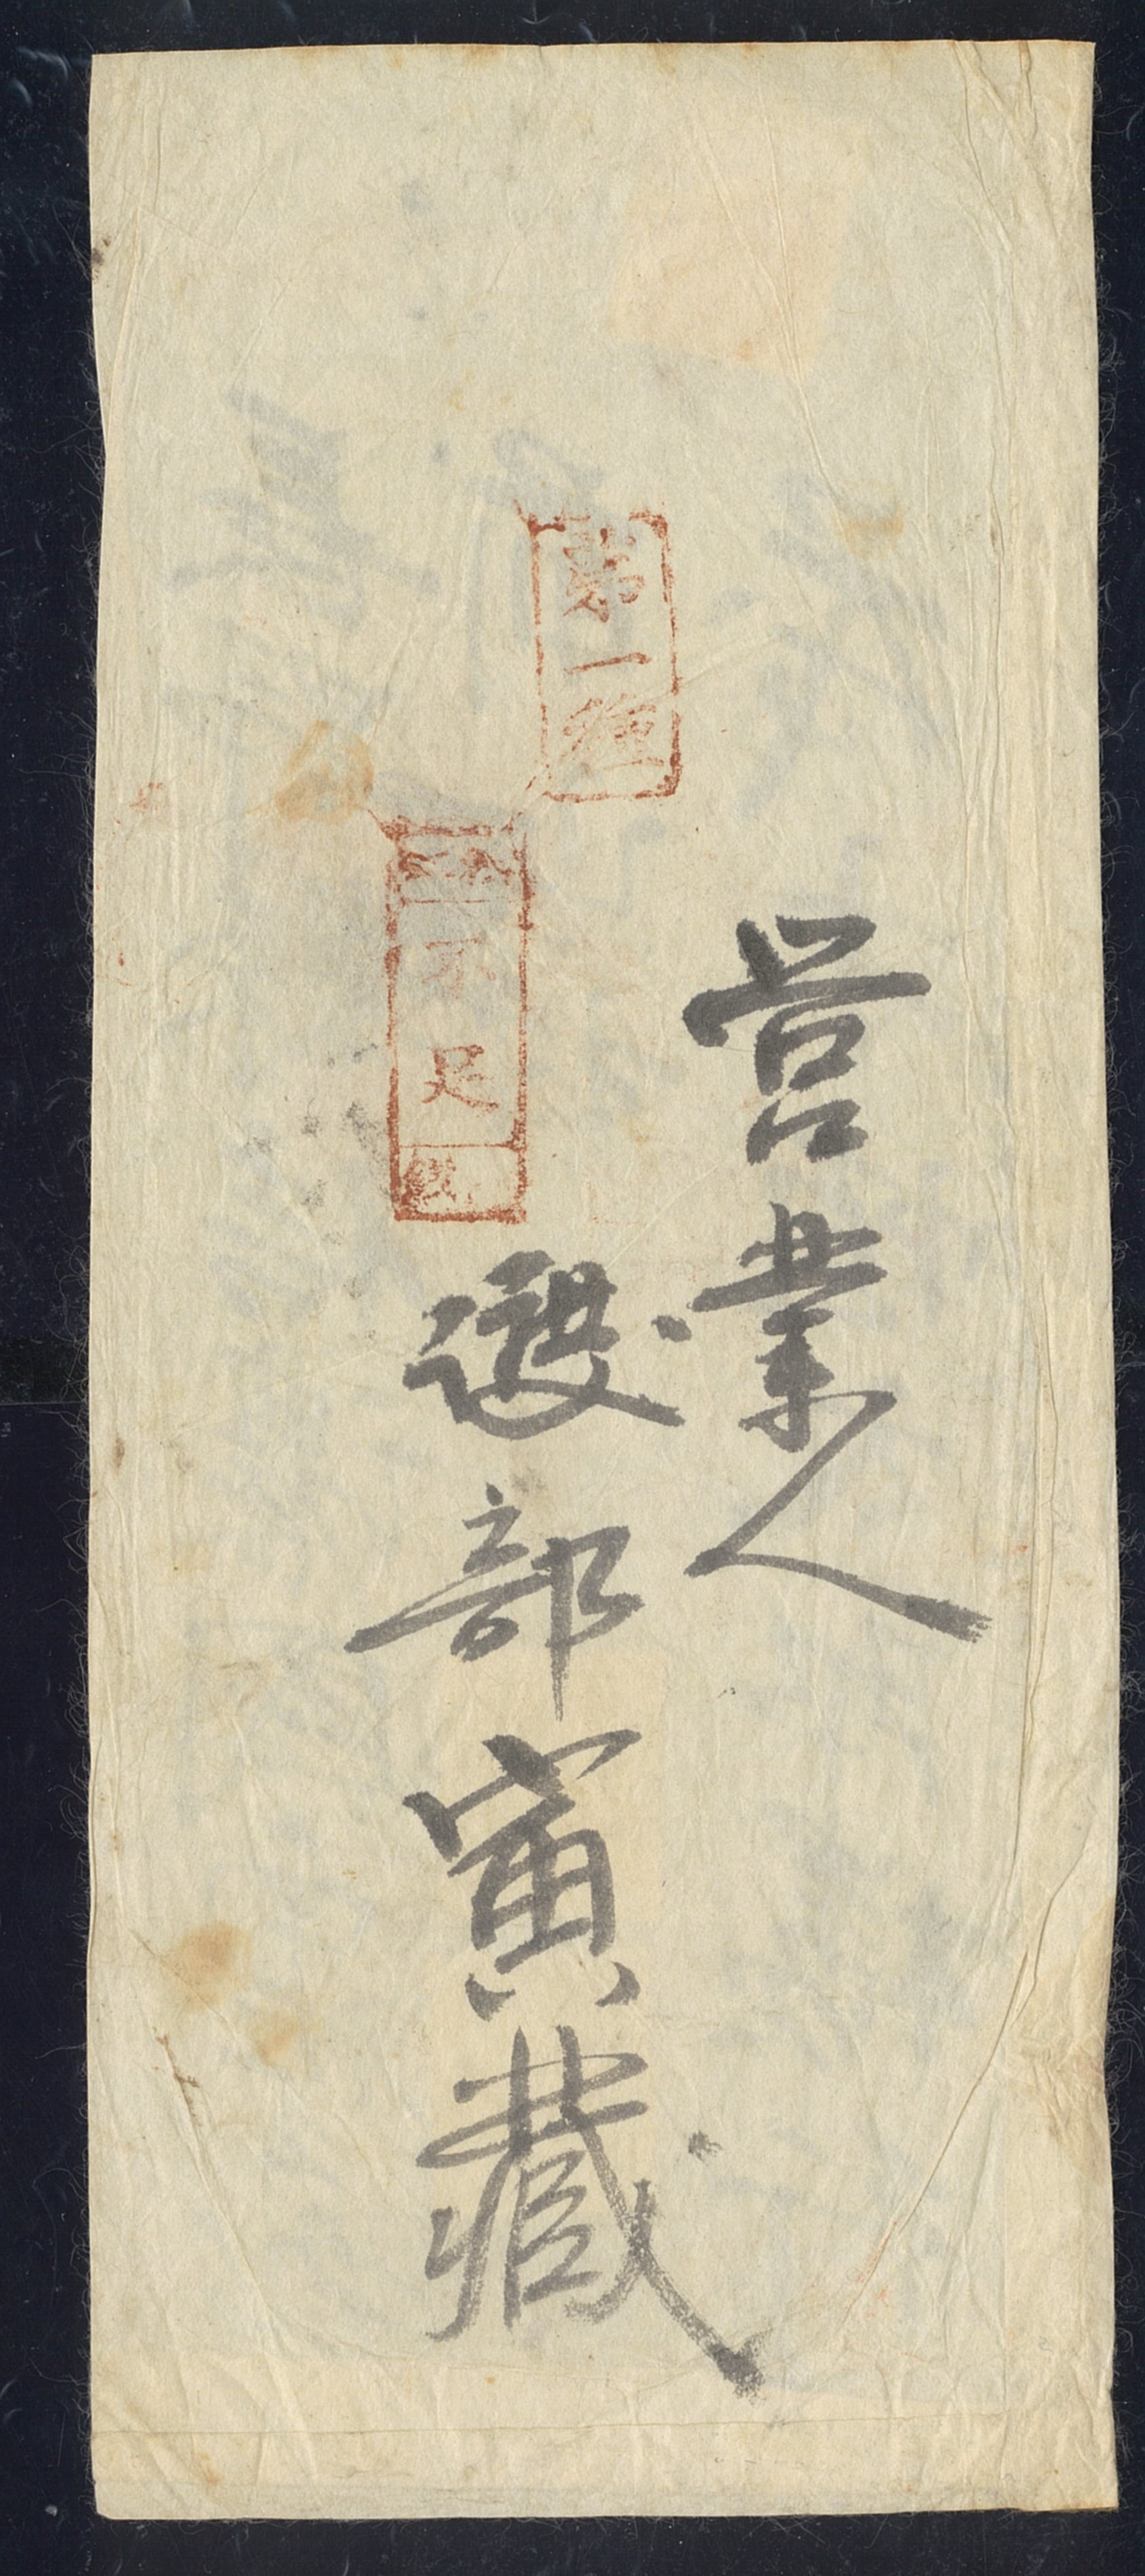 営業人
渡部寅蔵
第一種
不足